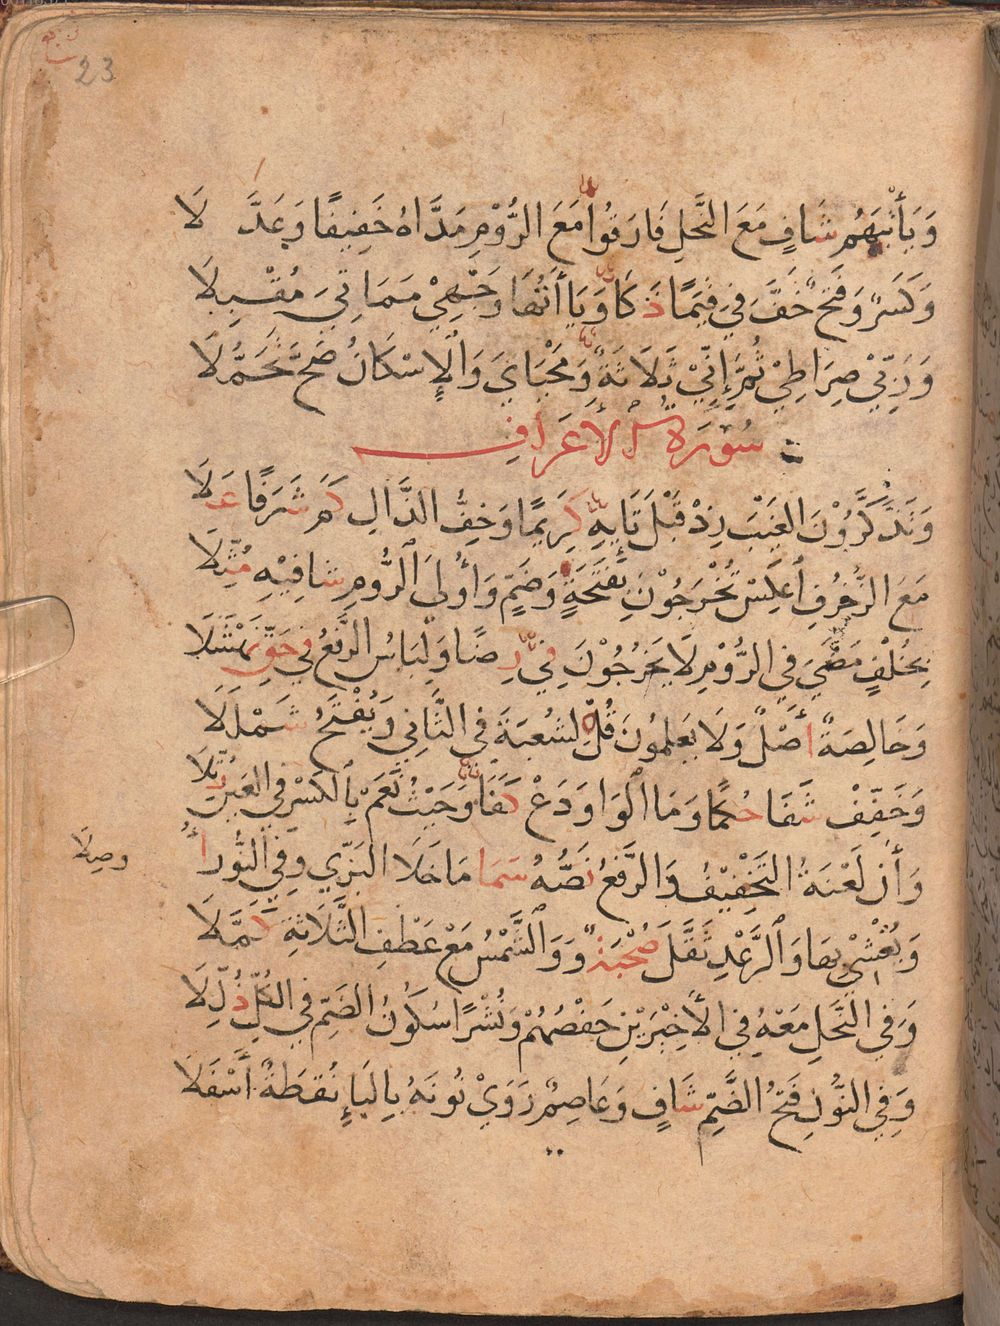 23
وَيَأْتِيَهُمْ شَافٍ مَعَ النَّحْلِ فَارَقُوا مَعَ الرُّوْمِ مَدَّاهُ خَفِيفًا وَعَدَّلَا
وَكَسْرٌ وَفَتْحٌ خَفَّ فِي قِيَمًا ذَكَا وَيَا آتُهَا وَجْهِيْ مَمَاتِيَ مُقْبِلَا
وَرَبِّيْ صِرَاطِيْ ثُمَّ إِنِّيْ ثَلَاثَةٌ وَمَحْيَايَ وَالْإِسْكَانُ صَحَّ تَحَمُّلَا
سُوْرَةُ الْأَعْرَافِ
وَتَذَّكَّرُوْنَ الْغَيْبَ زِدْ قَبْلَ تَايِهِ كَرِيمًا وَخِفُّ الذَّالِ كَمْ شَرَفًا عَلَا
مَعَ الزُّخْرُفِ اعْكِسْ تُخْرَجُوْنَ بِفَتْحَةٍ وَضَمٍّ وَأُولَى الرُّومِ شَافِيْهِ مُثِّلَا
بِخُلْفٍ مَضَى فِي الرُّوْمِ لَا يَخْرُجُوْنَ فِيْ رِضًا وَلِبَاسُ الرَّفْعُ فِي حَقِّ نَهْشَلَا
وَخَالِصَةٌ أَصْلٌ وَلَا يَعْلَمُونَ قُلْ لِشُعْبَةَ فِي الثَّانِي وَيُفْتَحُ شَمْلَلَا
وَخَفِّفْ شَفَا حُكْمًا وَمَا الْوَاوَ دَعْ كَفَا وَحَيْثُ نَعَمْ بِالْكَسْرِ فِي الْعَيْنِ رُتِّلَا
وَأَنْ لَعْنَةُ التَّخْفِيْفُ وَالرَّفْعُ نَصُّهُ سَمَا مَا خَلَا الْبَزِّي وَفِي النُّورِ أُ
وصِلَا
وَيُغْشِيْ بِهَا وَالرَّعْدِ ثَقَّلَ صُحْبَةٌ وَوَالشَّمْسُ مَعْ عَطْفِ الثَّلَاثَةِ كَمَّلَا
وَفِي النَّحْلِ مَعْهُ فِي الْأَخِيْرَيْنِ حَفْصُهُمْ وَنُشْرًا سُكُونُ الضَّمِّ فِي الْكُلِّ ذُلِّلَا
وَفِي النُّوْنِ فَتْحُ الضَّمِّ شَافٍ وَعَاصِمٌ رَوَىْ نُونَهُ بِالْبَاءِ نُقْطَةٌ أَسْفَلَا